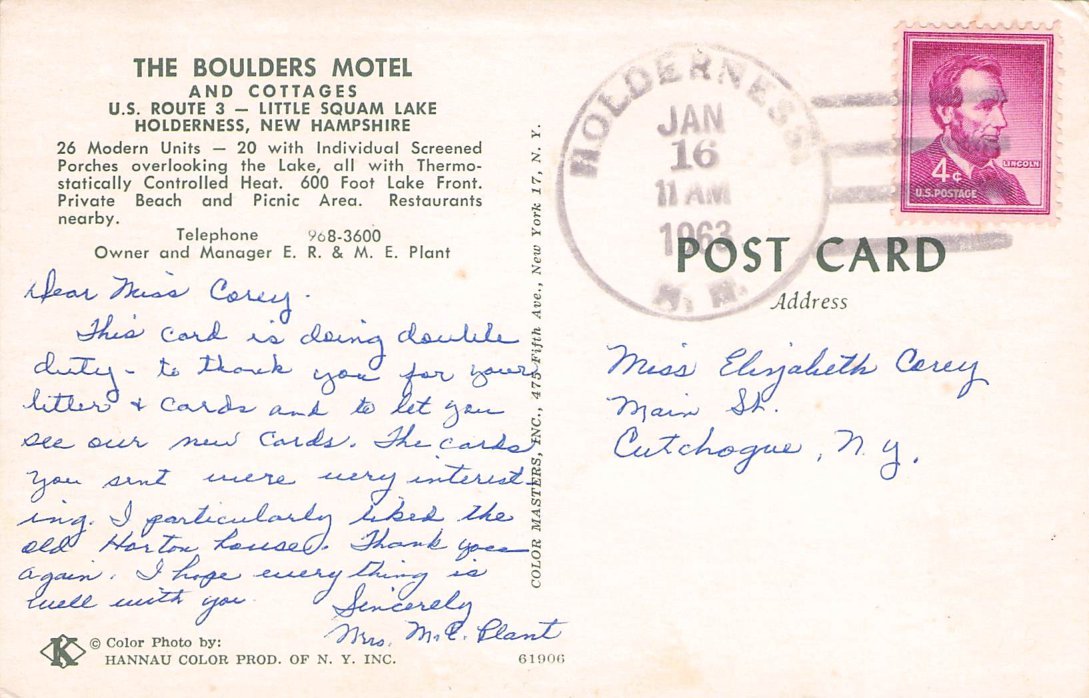 THE BOULDERS MOTEL
AND COTTAGES
U.S. ROUTE 3 — LITTLE SQUAM LAKE
HOLDERNESS, NEW HAMPSHIRE
26 Modern Units — 20 with Individual Screened
Porches overlooking the Lake, all with Thermo-
statically Controlled Heat. 600 Foot Lake Front.
Private Beach and Picnic Area. Restaurants
nearby.
Telephone 968-3600
Owner and Manager E. R. & M. E. Plant
Dear Miss Corey.
This card is doing double
duty - to thank you for your
letter & cards and to let you
see our new cards. The cards
you sent were very interest-
ing. I particularly liked the
old Horton house. Thank you
again. I hope everything is
well with you.
Sincerely
Mrs. M.E. Plant
K
© Color Photo by:
HANNAU COLOR PROD. OF N. Y. INC.
61906
COLOR MASTERS, INC., 475 Fifth Ave., New York 17, N. Y.
HOLDERNESS
JAN
16
11 AM
1963
N. H.
LINCOLN
4¢
U.S. POSTAGE
POST CARD
Address
Miss Elizabeth Corey
Main St.
Cutchogue, N.Y.